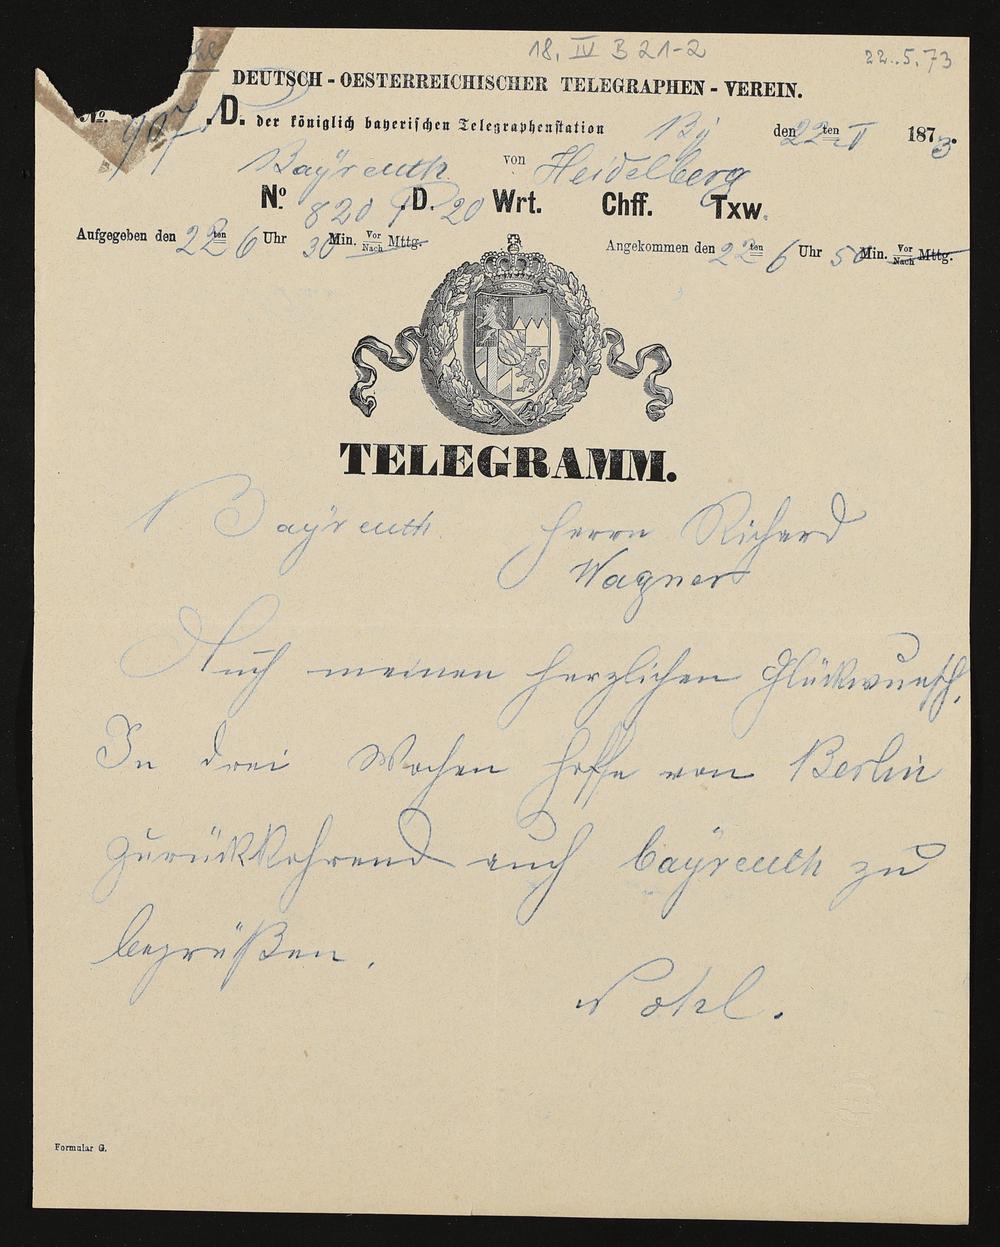 18. IV B 21-2
22.5.73
DEUTSCH-OESTERREICHISCHER TELEGRAPHEN-VEREIN.
No. 907 .D. der königlich bayerischen Telegraphenstation By den 22ten V 1873.
Bayreuth von Heidelberg
No. 820 .D. 20 Wrt. Chff. Txw.
Aufgegeben den 22ten 6 Uhr 30 Min. Vor Nach Mttg. Angekommen den 22ten 6 Uhr 50 Min. Vor Nach Mttg.
TELEGRAMM.
Bayreuth. Herrn Richard
Wagner
Auch meinen herzlichen Glückwunsch.
In drei Wochen hoffe von Berlin
zurückkehrend auch bayreuth zu
begrüßen.
Pohl.
Formular G.